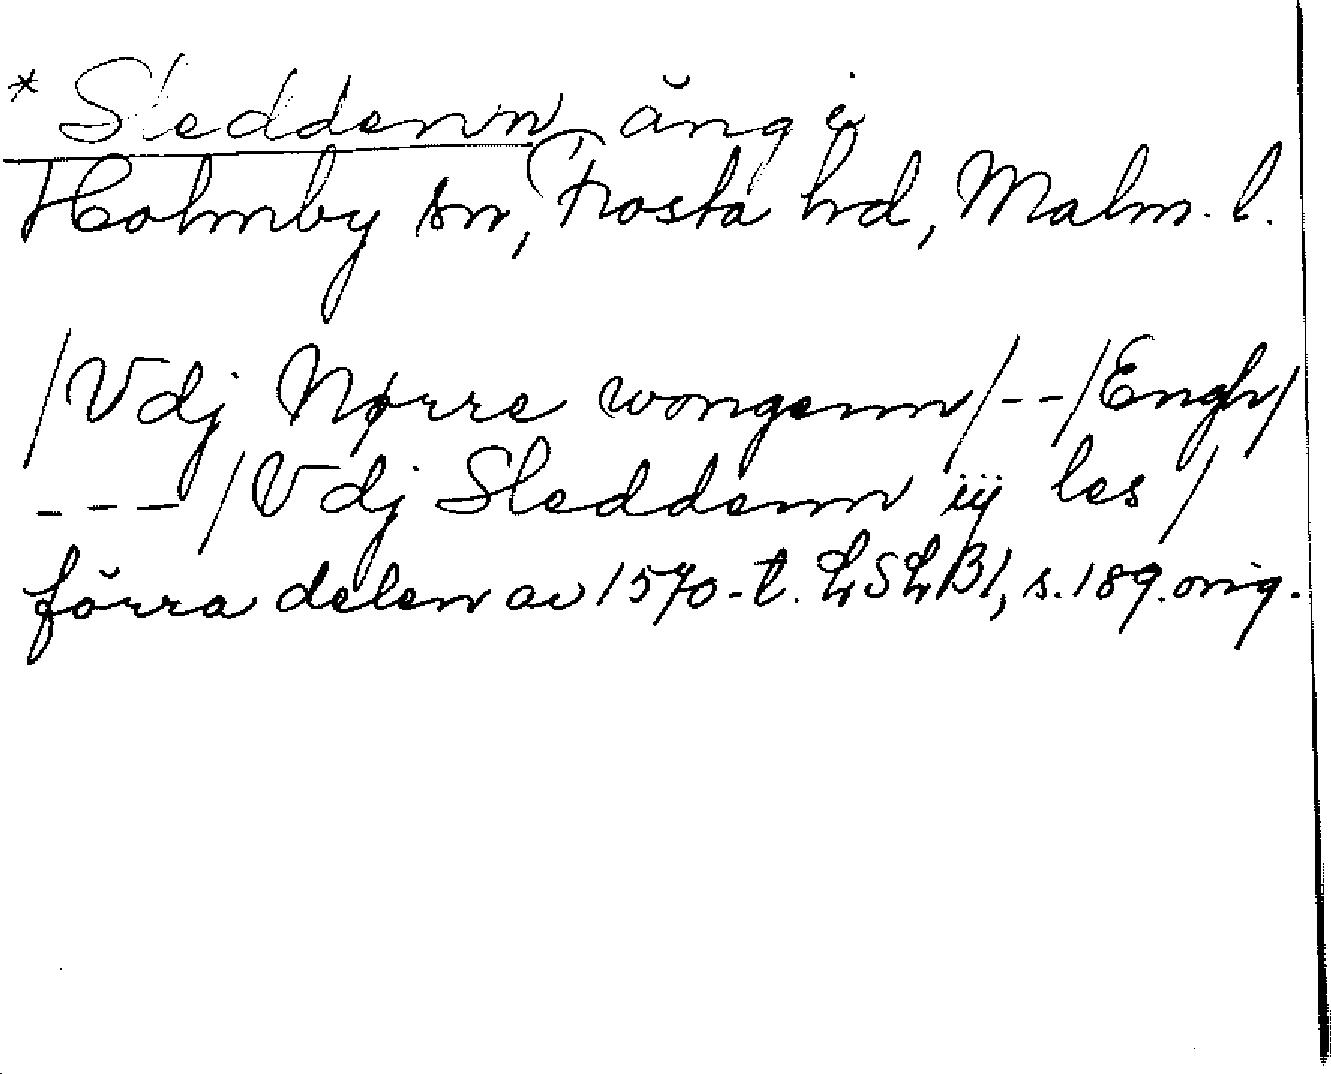 * Sleddenn, äng i
Holmby sn, Frosta hd, Malm. l.
/Vdj Nørre wongenn/--/Engh/
---/Vdj Sleddenn iij les/
förra delen av 1570-t. LSLB1, s.189.orig.